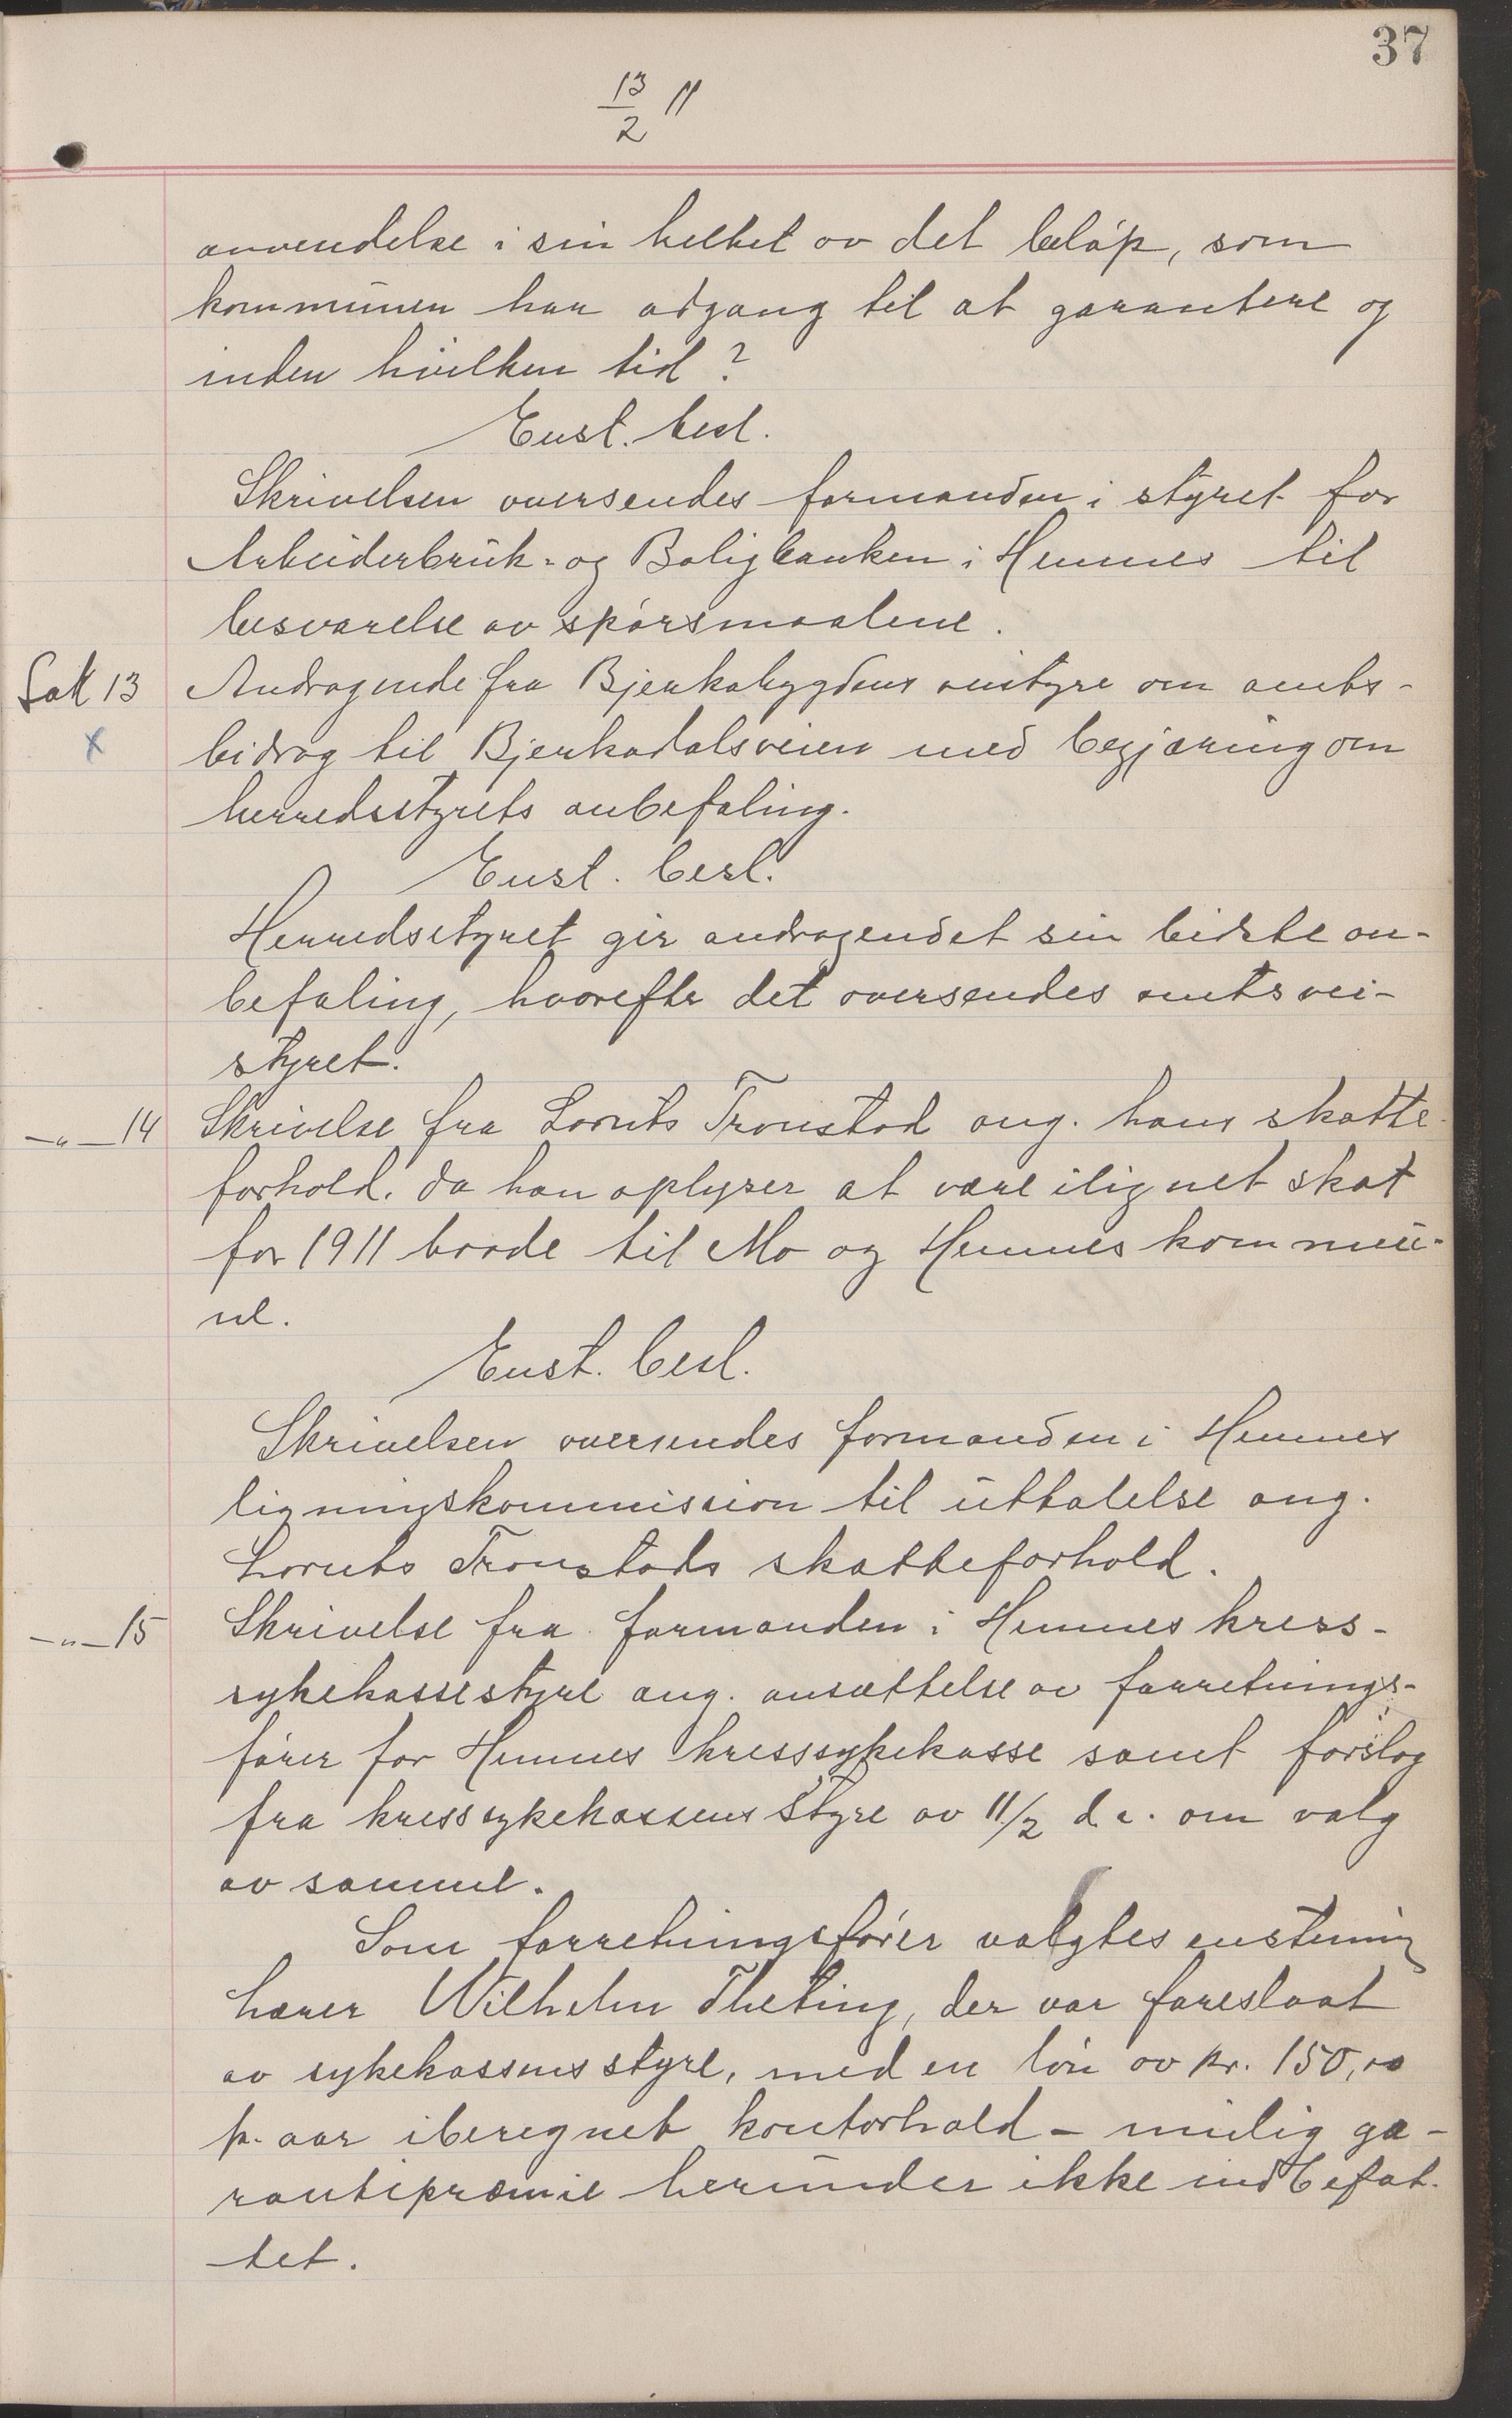 37
13/2 11
anvendelse i sin helhet av det beløp, som
kommunen har adgang til at garantere og
inden hvilken tid?
Enst. besl.
Skrivelsen oversendes formanden i styret for
Arbeiderbruk- og Boligbanken i Hemnes til
besvarelse av spørsmaalene.
Sak 13 Andragende fra Bjerkabygdens veistyre om amts-
x bidrag til Bjerkadalsveien med begjæring om
herredsstyrets anbefaling.
Enst. besl.
Herredsstyret gir andragendet sin bedste an-
befaling, hvorefter det oversendes amtsvei-
styret.
-"- 14 Skrivelse fra Lornts Tronstad ang. hans skatte-
forhold. da han oplyser at være ilignet skat
for 1911 baade til Mo og Hemnes kommu-
ne.
Enst. besl.
Skrivelsen oversendes formanden i Hemnes
ligningskommission til uttalelse ang.
Lornts Tronstads skatteforhold.
-"- 15 Skrivelse fra formanden i Hemnes kress-
sykekassestyre ang. ansættelse av forretnings-
fører for Hemnes kresssykekasse samt forslag
fra kresssykekassens styre av 11/2 d.a. om valg
av samme.
Som forretningsfører valgtes enstemmig
lærer Wilhelm Theting, der var foreslaat
av sykekassens styre, med en løn av kr. 150,00
p. aar iberegnet kontorhold - mulig ga-
rantipræmie herunder ikke indbefat-
tet.